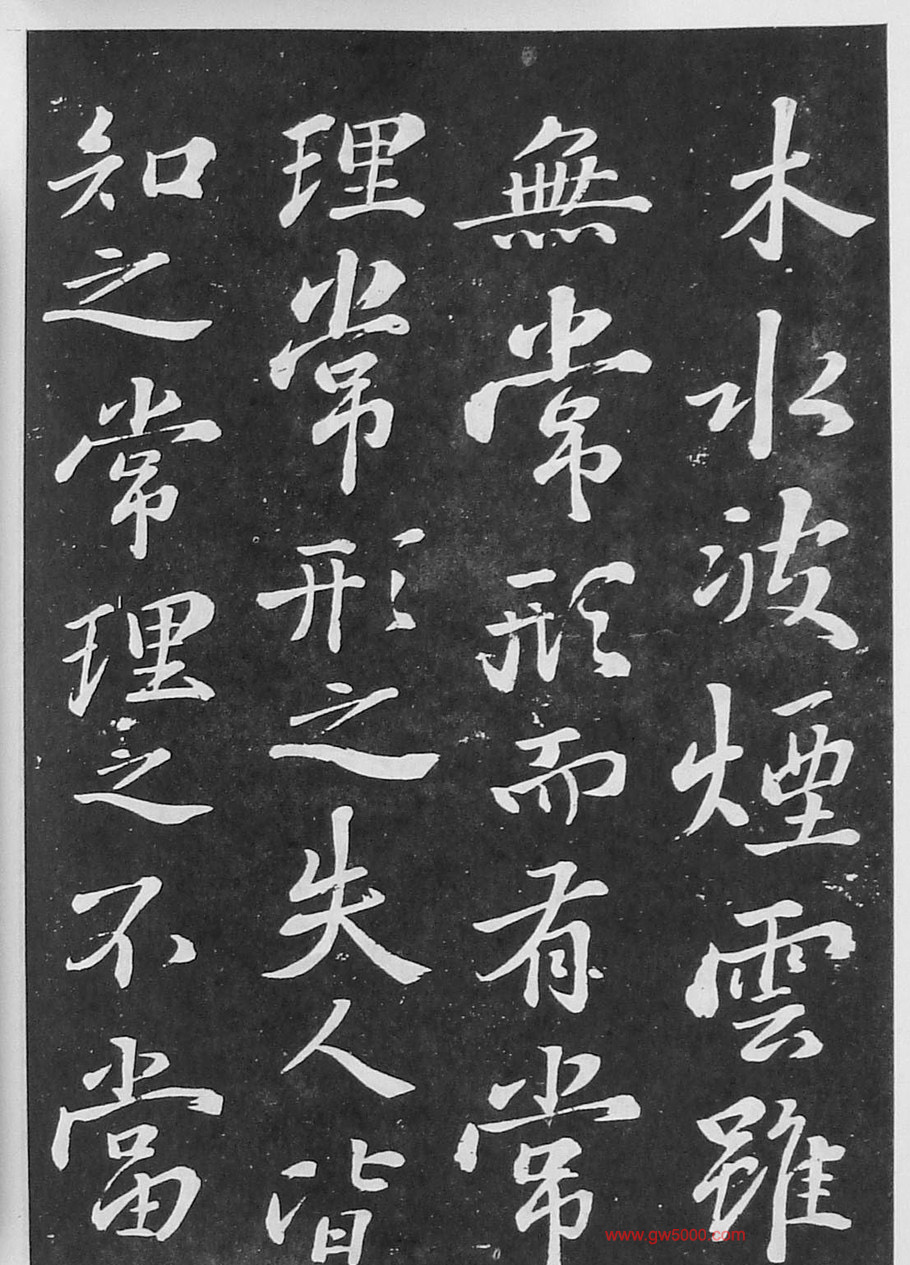 木水波煙雲雖
無常形而有常
理常形之失人皆
知之常理之不當
www.gw5000.com